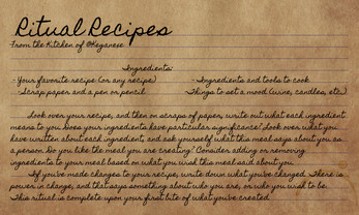 Ritual Recipes
From the Kitchen of @Keganese
Ingredients:
-Your favorite recipe (or any recipe) -Ingredients and tools to cook
-Scrap paper and a pen or pencil -Things to set a mood (wine, candles, etc.)
Look over your recipe, and then on scraps of paper, write out what each ingredient
means to you. Does your ingredients have particular significance? Look over what you
have written about each ingredient, and ask yourself what this meal says about you as
a person. Do you like the meal you are creating? Consider adding or removing
ingredients to your meal based on what you wish this meal said about you.
If you've made changes to your recipe, write down what you've changed. There is
power in change, and that says something about who you are, or who you wish to be.
This ritual is complete upon your first bite of what you've created.